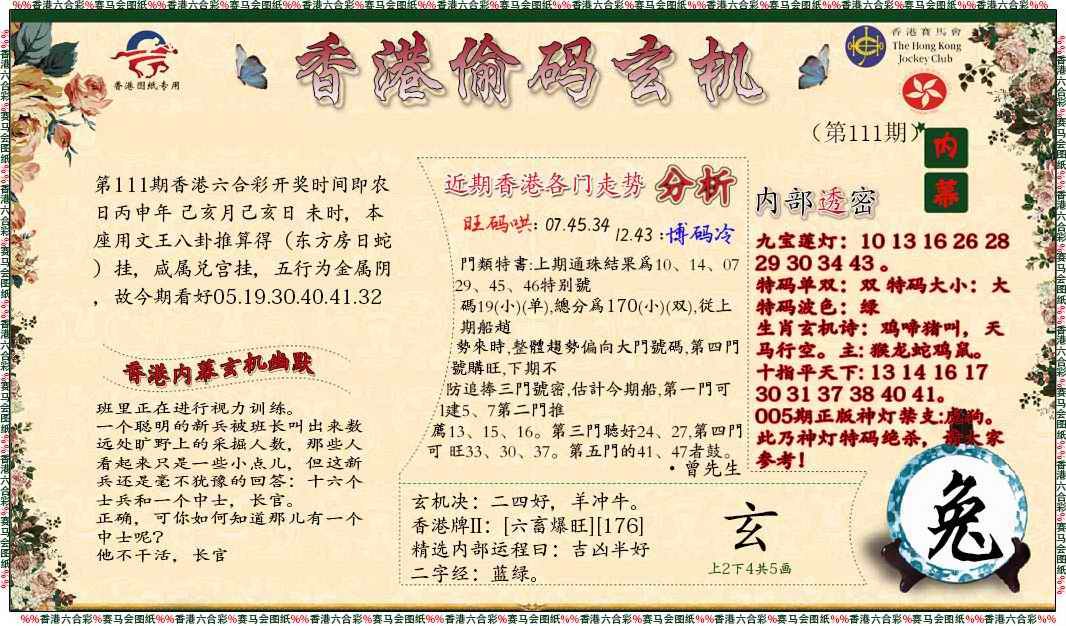 %%香港六合彩%赛马会图纸%%香港六合彩%赛马会图纸%%香港六合彩%赛马会图纸%%香港六合彩%赛马会图纸%%香港六合彩%赛马会图纸%%香港六合彩%赛马会图纸%%香港六合彩%%
香港图纸专用
香港偷码玄机
香港賽馬會
The Hong Kong
Jockey Club
（第111期）
内幕
第111期香港六合彩开奖时间即农
日丙申年 己亥月己亥日 未时，本
座用文王八卦推算得（东方房日蛇
）挂，咸属兑宫挂，五行为金属阴
，故今期看好05.19.30.40.41.32
香港内幕玄机幽默
班里正在进行视力训练。
一个聪明的新兵被班长叫出来数
远处旷野上的采掘人数，那些人
看起来只是一些小点儿，但这新
兵还是毫不犹豫的回答：十六个
士兵和一个中士，长官。
正确，可你如何知道那儿有一个
中士呢？
他不干活，长官
近期香港各门走势 分析
旺码哄：07.45.34
12.43：博码冷
門類特書:上期通珠結果爲10、14、07
29、45、46特别號
碼19(小)(单),總分爲170(小)(双),從上
期船趙
勢來時,整體趨勢偏向大門號碼,第四門
號購旺,下期不
防追捧三門號密,估計今期船,第一門可
1建5、7第二門推
薦13、15、16。第三門聽好24、27,第四門
可 旺33、30、37。第五門的41、47者鼓。
·曾先生
内部透密
九宝莲灯：10 13 16 26 28
29 30 34 43 。
特码单双：双 特码大小：大
特码波色：绿
生肖玄机诗：鸡啼猪叫，天
马行空。主: 猴龙蛇鸡鼠。
十指平天下: 13 14 16 17
30 31 37 38 40 41。
005期正版神灯禁支:虎狗。
此乃神灯特码绝杀，请大家
参考！
玄机决：二四好，羊冲牛。
香港牌II：[六畜爆旺][176]
精选内部运程曰：吉凶半好
二字经：蓝绿。
玄
上2下4共5画
兔
%%香港六合彩%赛马会图纸%%香港六合彩%赛马会图纸%%香港六合彩%赛马会图纸%%香港六合彩%赛马会图纸%%香港六合彩%赛马会图纸%%香港六合彩%赛马会图纸%%香港六合彩%%